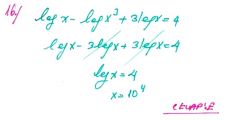 16/ log x - log x³ + 3 log x = 4
log x - 3log x + 3log x = 4
log x = 4
x = 10⁴